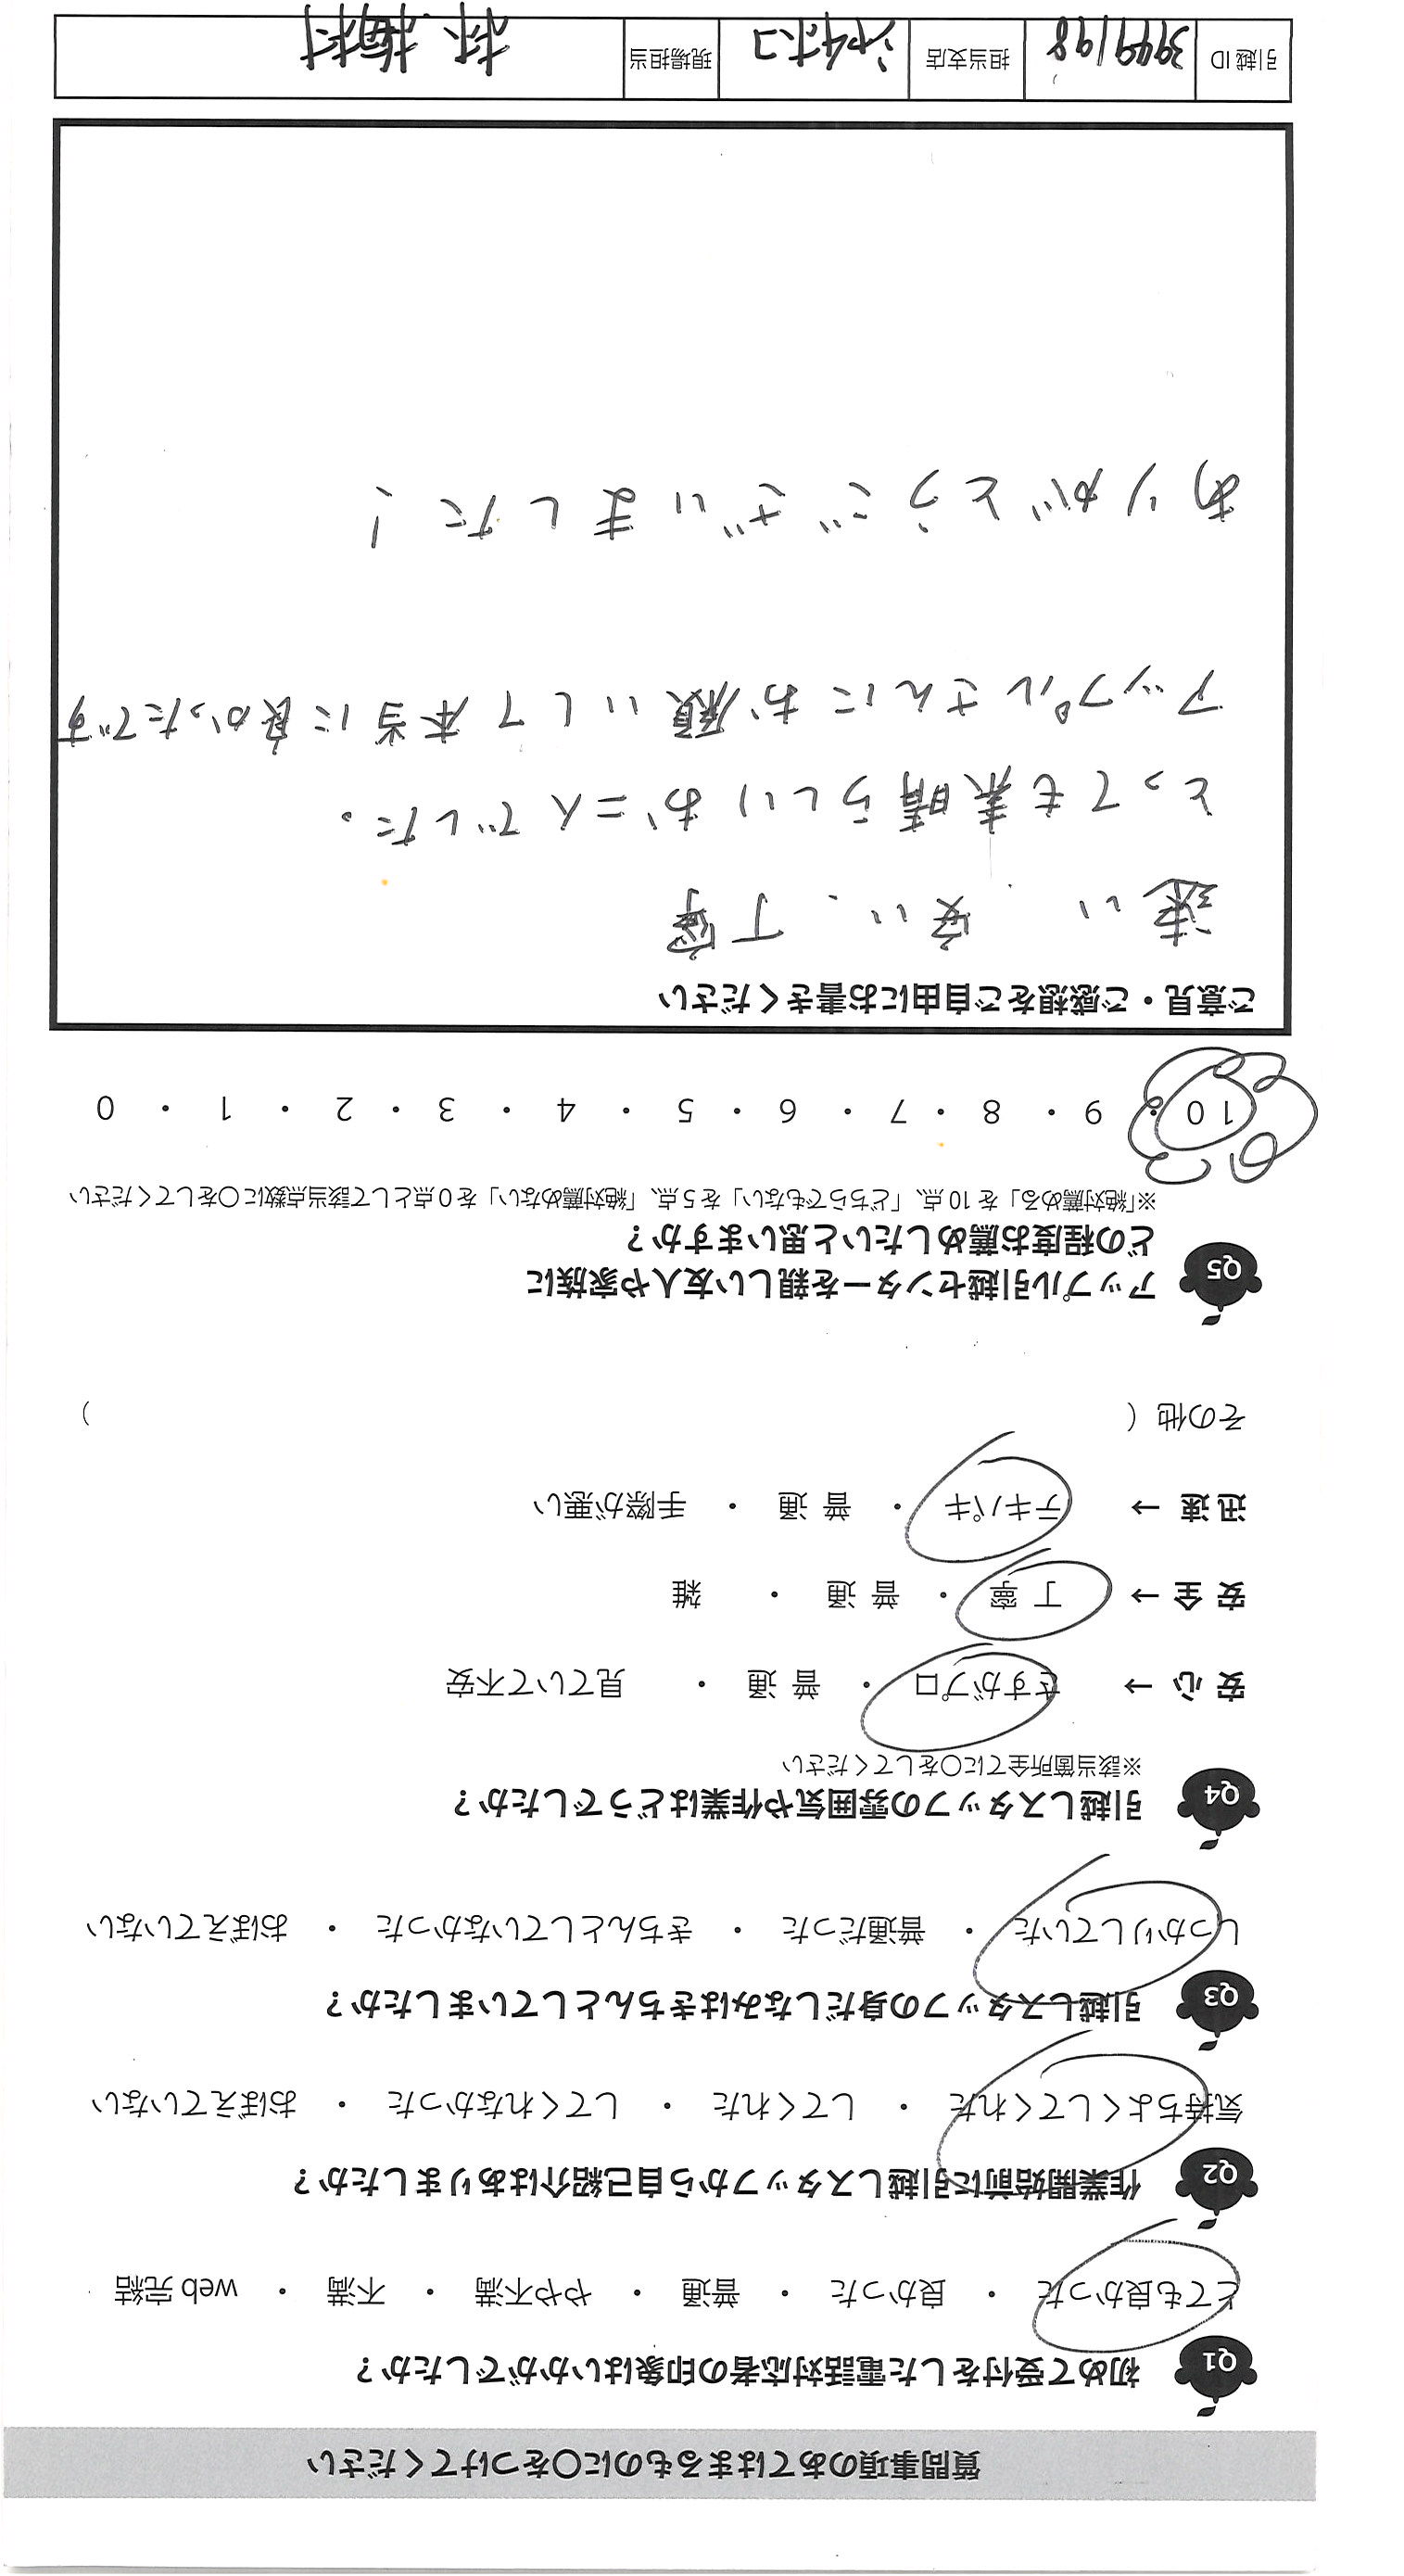 質問事項のあてはまるものに〇をつけてください
Q1 初めて受付をした電話対応者の印象はいかがでしたか？
とても良かった ・ 良かった ・ 普通 ・ やや不満 ・ 不満 ・ web完結
Q2 作業開始前に引越しスタッフから自己紹介はありましたか？
気持ちよくしてくれた ・ してくれた ・ してくれなかった ・ おぼえていない
Q3 引越しスタッフの身だしなみはきちんとしていましたか？
しっかりしていた ・ 普通だった ・ きちんとしていなかった ・ おぼえていない
Q4 引越しスタッフの雰囲気や作業はどうでしたか？
※該当箇所全てに〇をしてください
安心 → さすがプロ ・ 普通 ・ 見ていて不安
安全 → 丁寧 ・ 普通 ・ 雑
迅速 → テキパキ ・ 普通 ・ 手際が悪い
その他（ ）
Q5 アップル引越センターを親しい友人や家族に
どの程度お薦めしたいと思いますか？
※「絶対薦める」を10点、「どちらでもない」を5点、「絶対薦めない」を0点として該当点数に〇をしてください
10 ・ 9 ・ 8 ・ 7 ・ 6 ・ 5 ・ 4 ・ 3 ・ 2 ・ 1 ・ 0
ご意見・ご感想をご自由にお書きください
速い、安い、丁寧
とっても素晴らしいお二人でした。
アップルさんにお願いして本当に良かったです
ありがとうございました！
引越ID 3949198 担当支店 現場担当 林 梅村